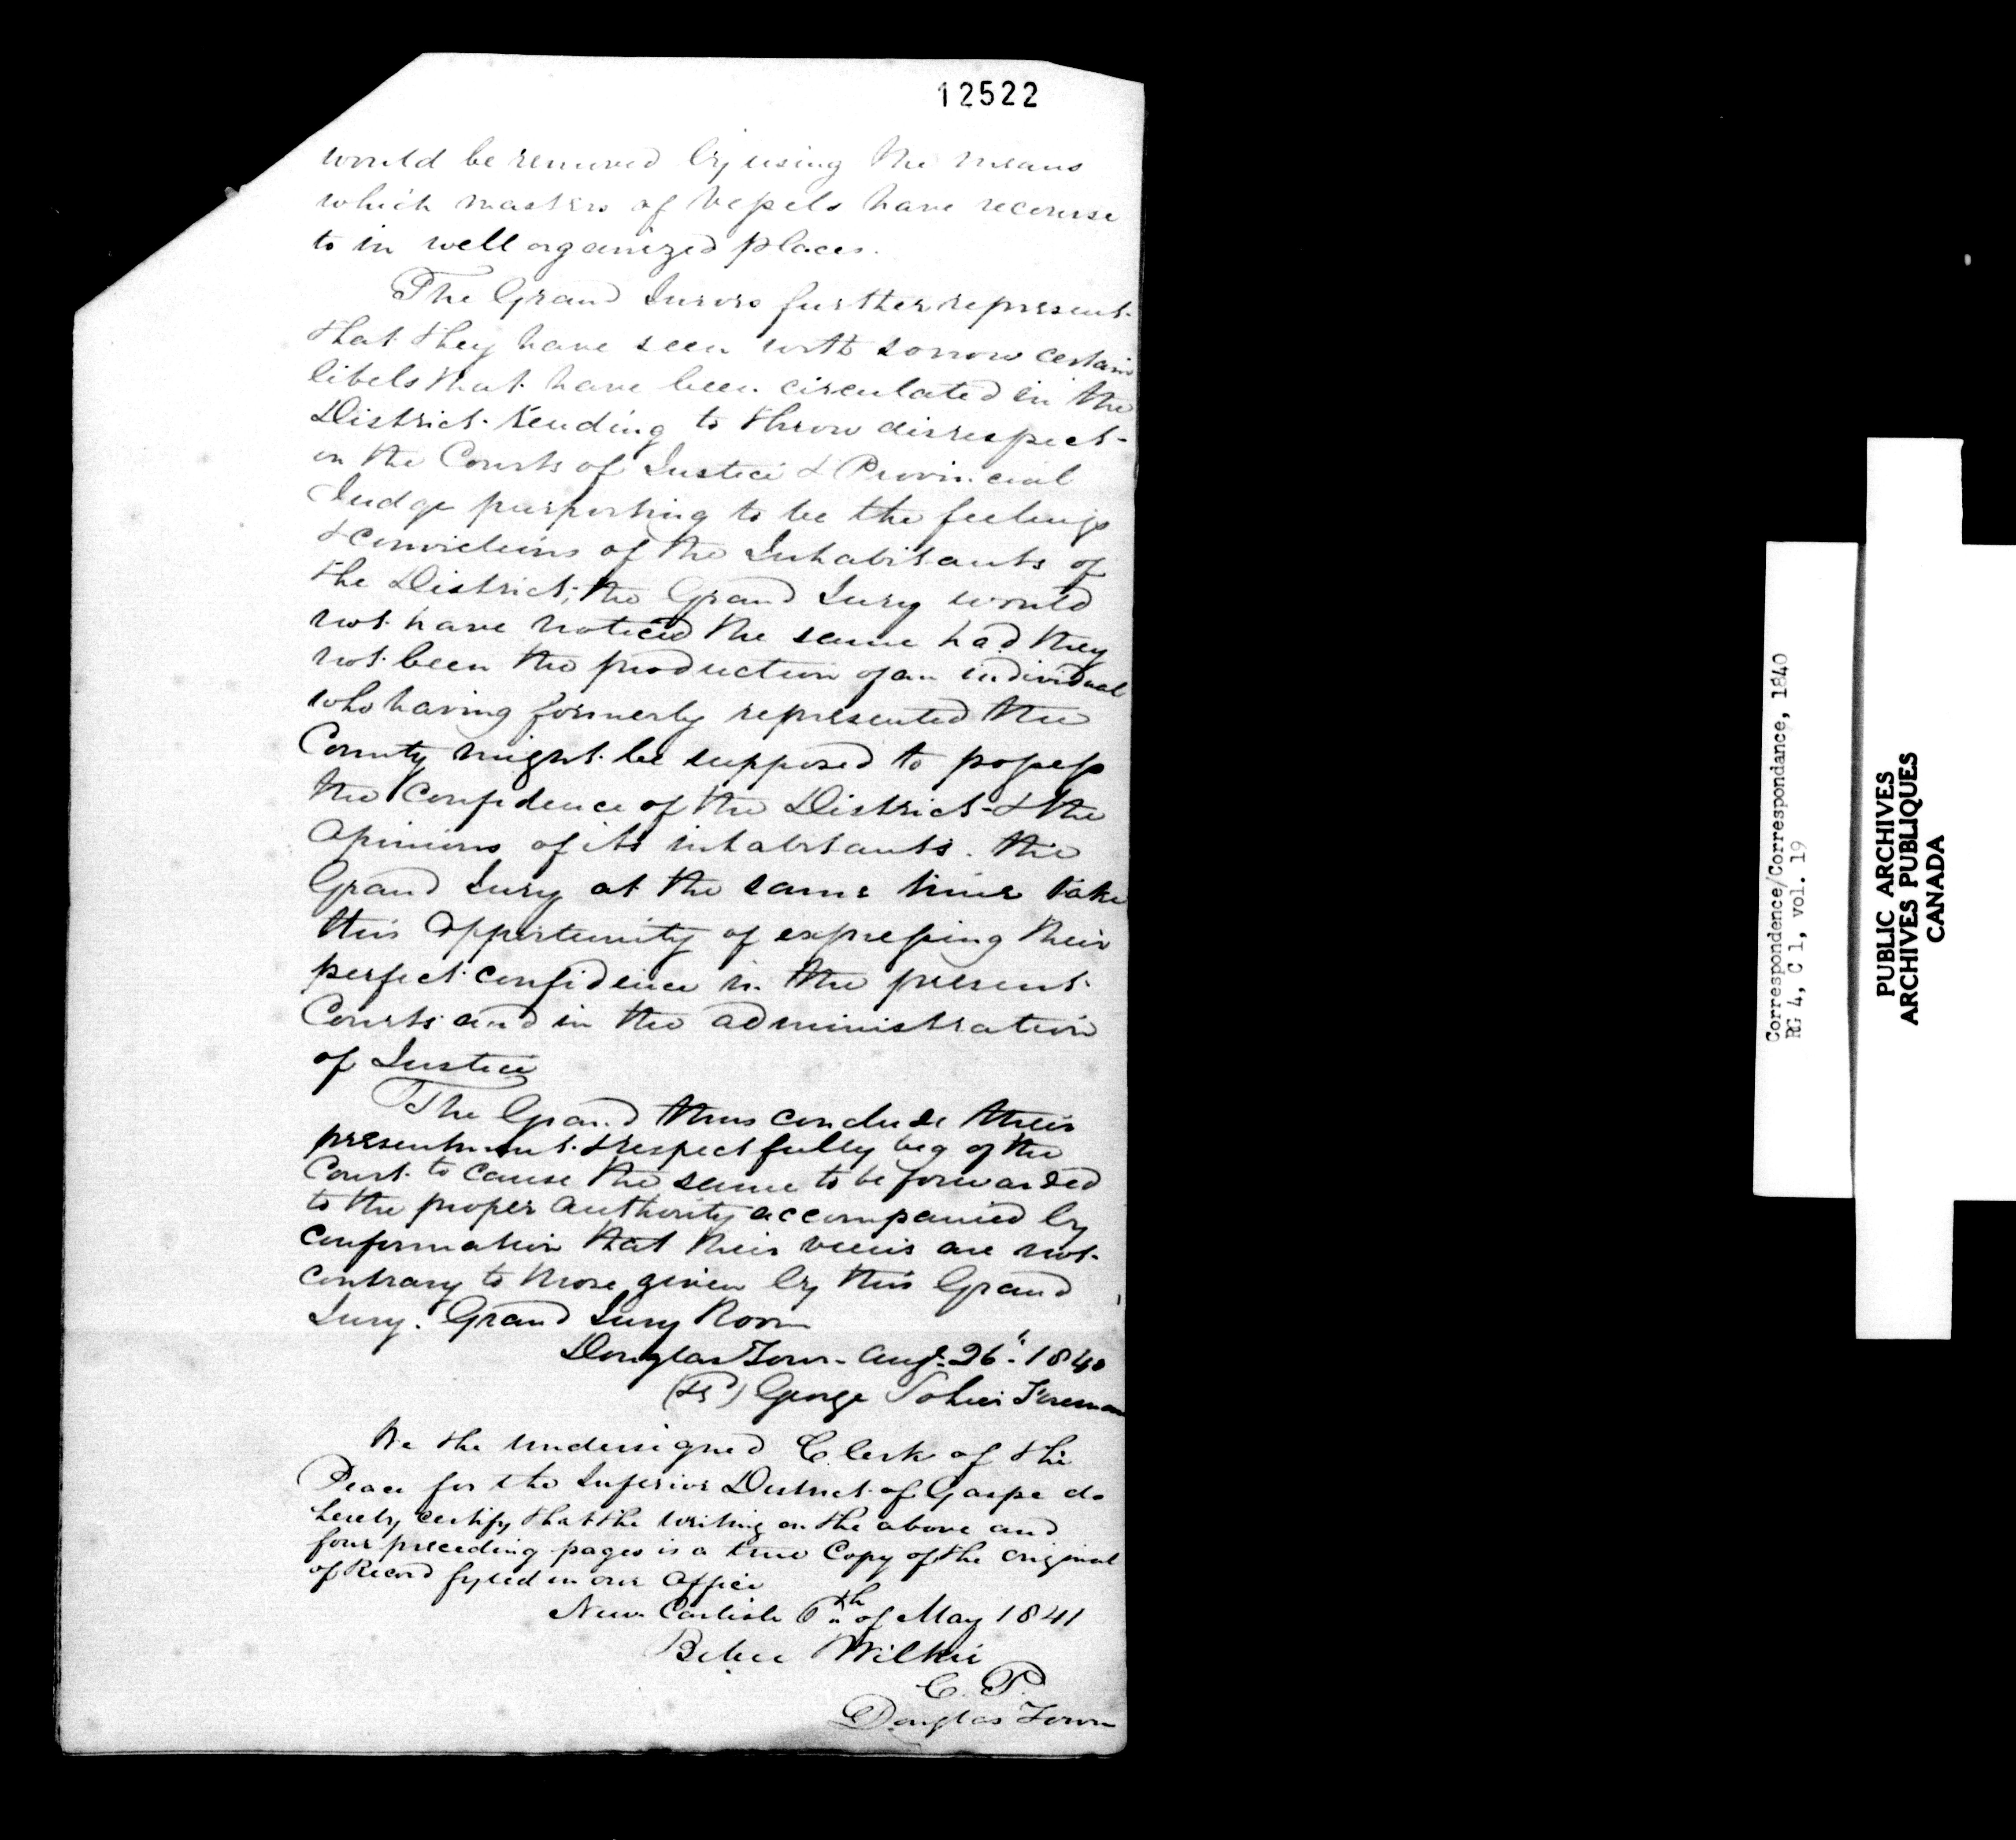 12522
would be removed by using the means
which masters of Vessels have recourse
to in well organized places.
The Grand Jurors further represent
that they have seen with sorrow certain
libels that have been circulated in the
District tending to throw disrespect
on the Courts of Justice & Provincial
Judge purporting to be the feelings
& convictions of the Inhabitants of
the District; the Grand Jury would
not have noticed the same had they
not been the production of an individual
who having formerly represented the
County might be supposed to possess
the Confidence of the District & the
Opinions of its inhabitants. the
Grand Jury at the same time take
this opportunity of expressing their
perfect confidence in the present
Courts and in the administration
of Justice
The Grand thus conclude their
presentment & respectfully beg of the
Court to cause the same to be forwarded
to the proper Authority accompanied by
confirmation that their views are not
contrary to those given by this Grand
Jury. Grand Jury Room
Douglas Town Augt. 26th 1840
George Foreman
We the undersigned Clerk of the
Peace for the Inferior District of Gaspe do
hereby certify that the writing on the above and
four preceding pages is a true Copy of the original
of Record fyled in our Office
New Carlisle 6th of May 1841
Wilkie
C. P.
Douglas Town
Correspondence/Correspondance, 1840
RG 4, C 1, vol. 19
PUBLIC ARCHIVES
ARCHIVES PUBLIQUES
CANADA